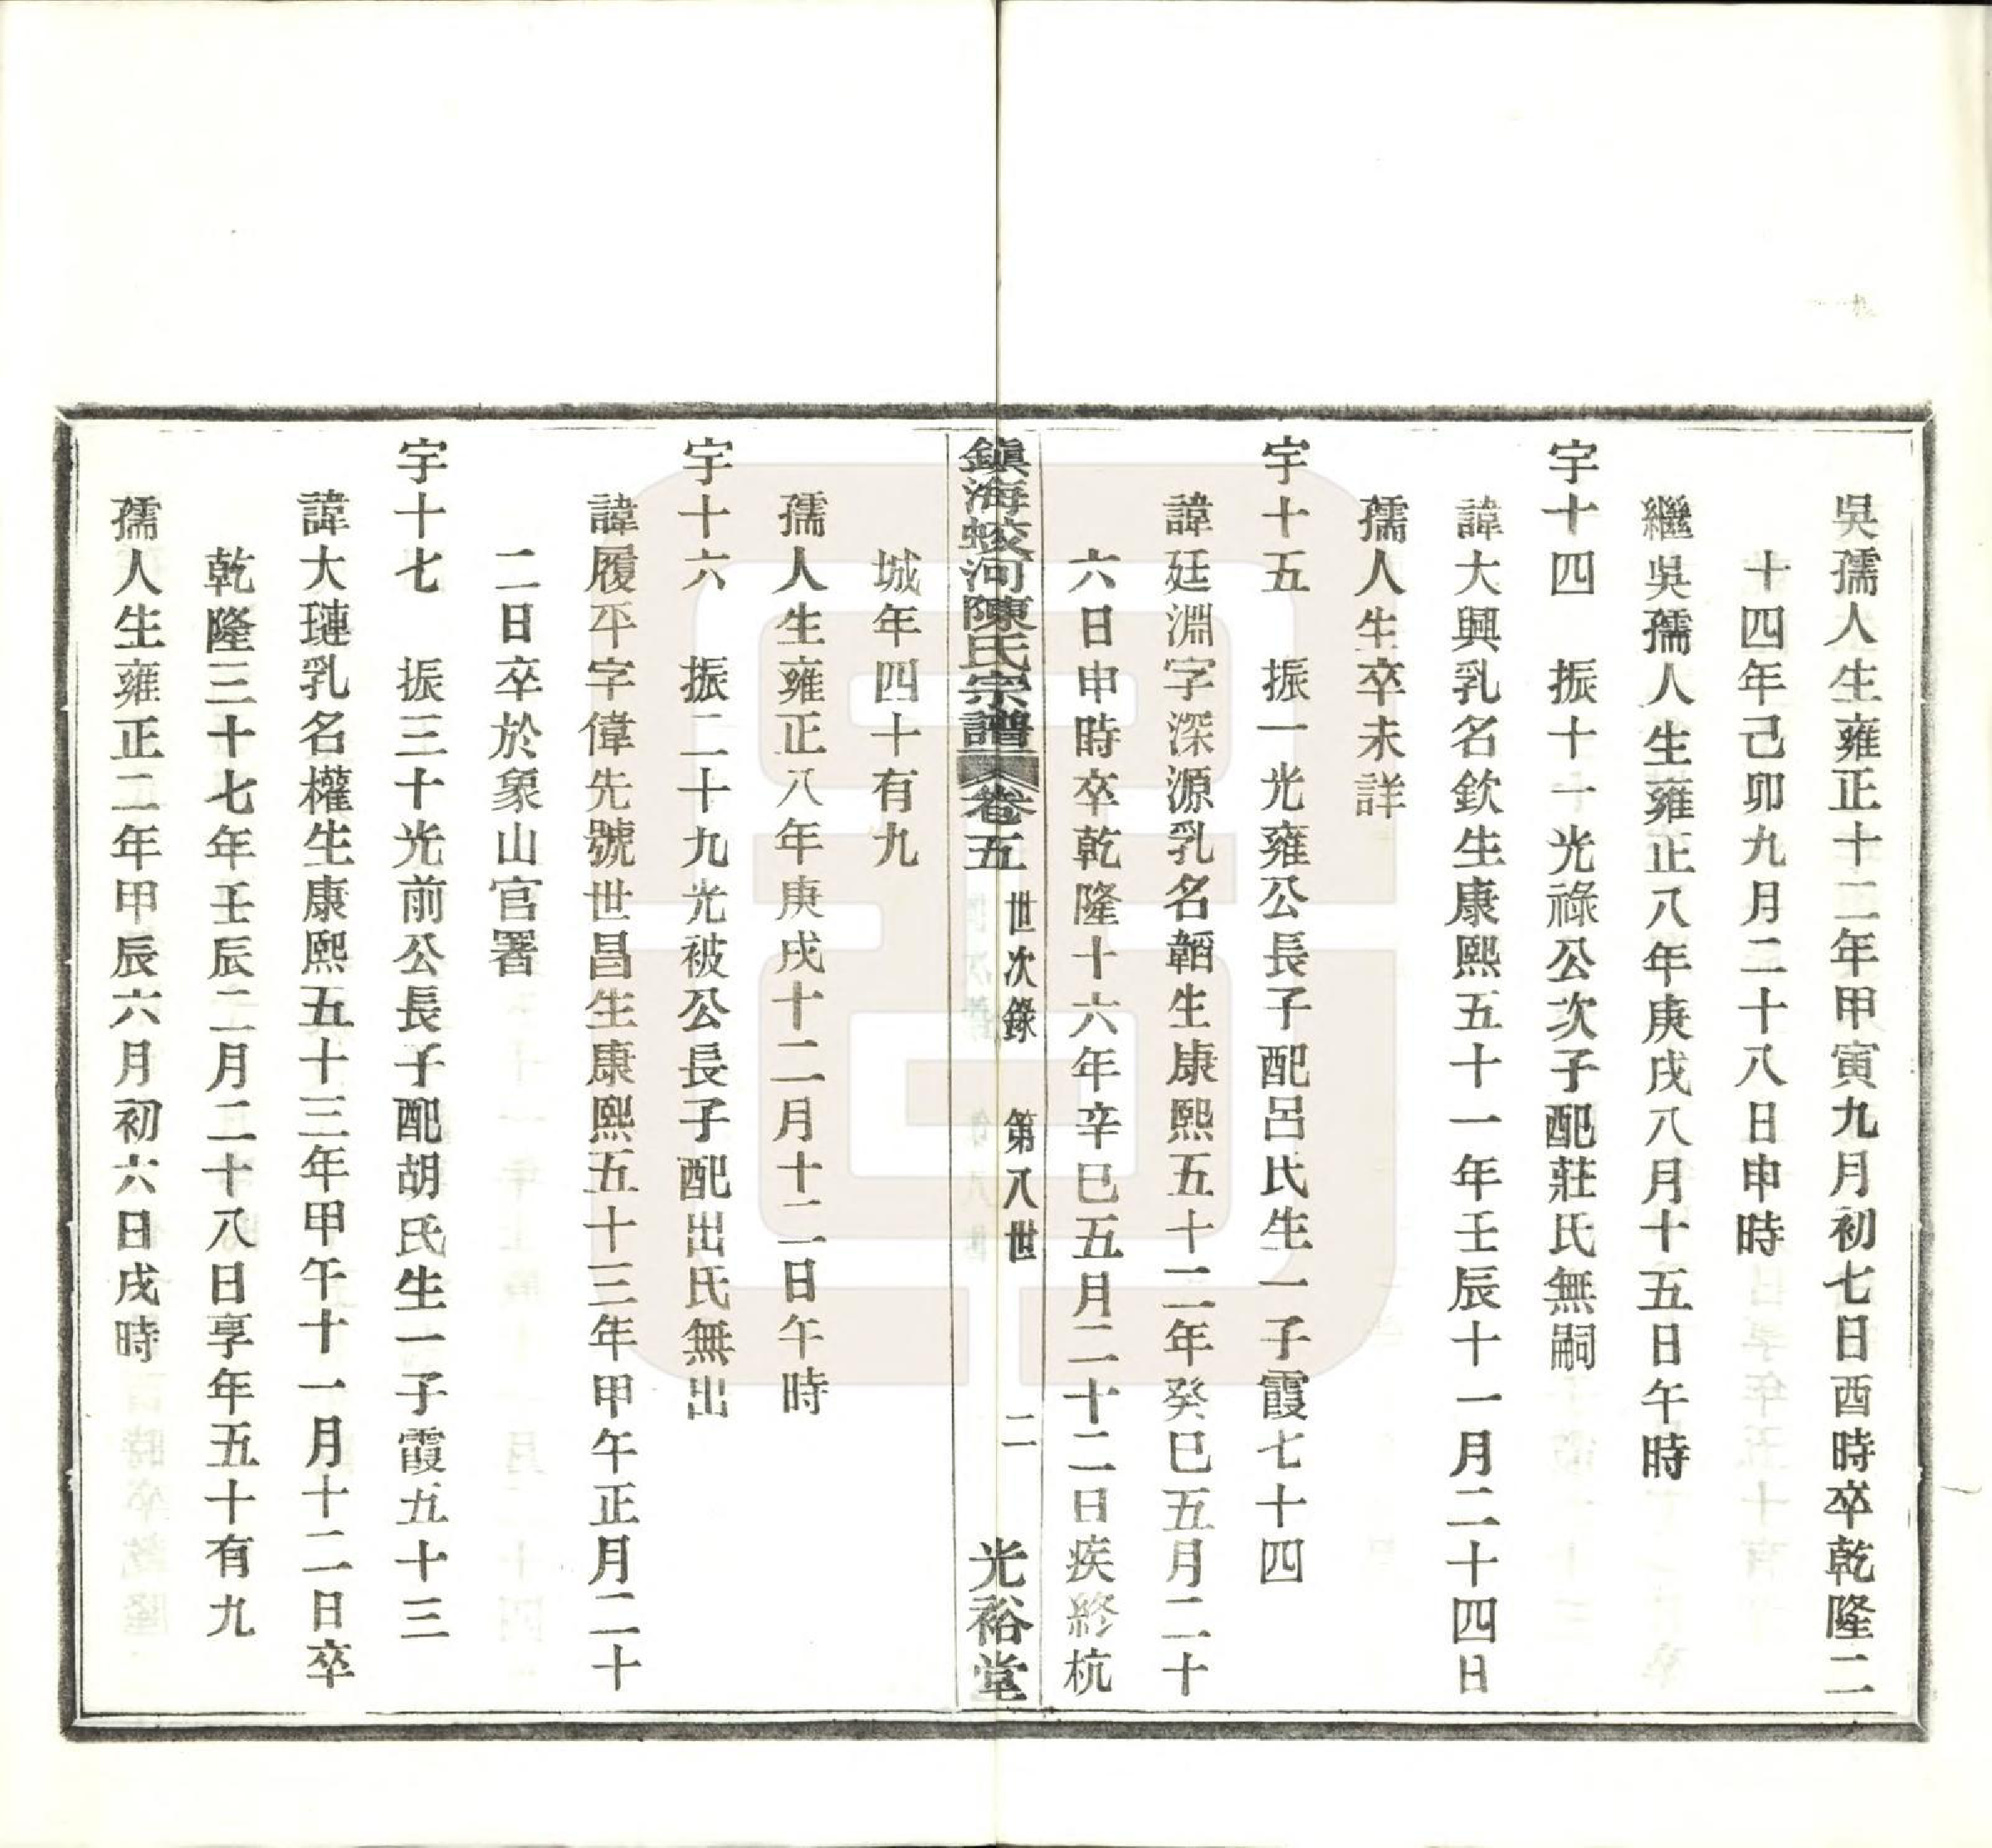 吳孺人生雍正十二年甲寅九月初七日酉時卒乾隆二
十四年己卯九月二十八日申時
繼吳孺人生雍正八年庚戌八月十五日午時
宇十四　振十一光祿公次子配莊氏無嗣
諱大興乳名欽生康熙五十一年壬辰十一月二十四日
孺人生卒未詳
宇十五　振一光雍公長子配呂氏生一子霞七十四
諱廷淵字深源乳名韜生康熙五十二年癸巳五月二十
六日申時卒乾隆十六年辛巳五月二十二日疾終杭
鎮海蛟河陳氏宗譜　卷五　世次錄　第八世　二　光裕堂
城年四十有九
孺人生雍正八年庚戌十二月十二日午時
宇十六　振二十九光被公長子配出氏無出
諱履平字偉先號世昌生康熙五十三年甲午正月二十
二日卒於象山官署
宇十七　振三十光前公長子配胡氏生一子霞五十三
諱大璉乳名權生康熙五十三年甲午十一月十二日卒
乾隆三十七年壬辰二月二十八日享年五十有九
孺人生雍正二年甲辰六月初六日戌時